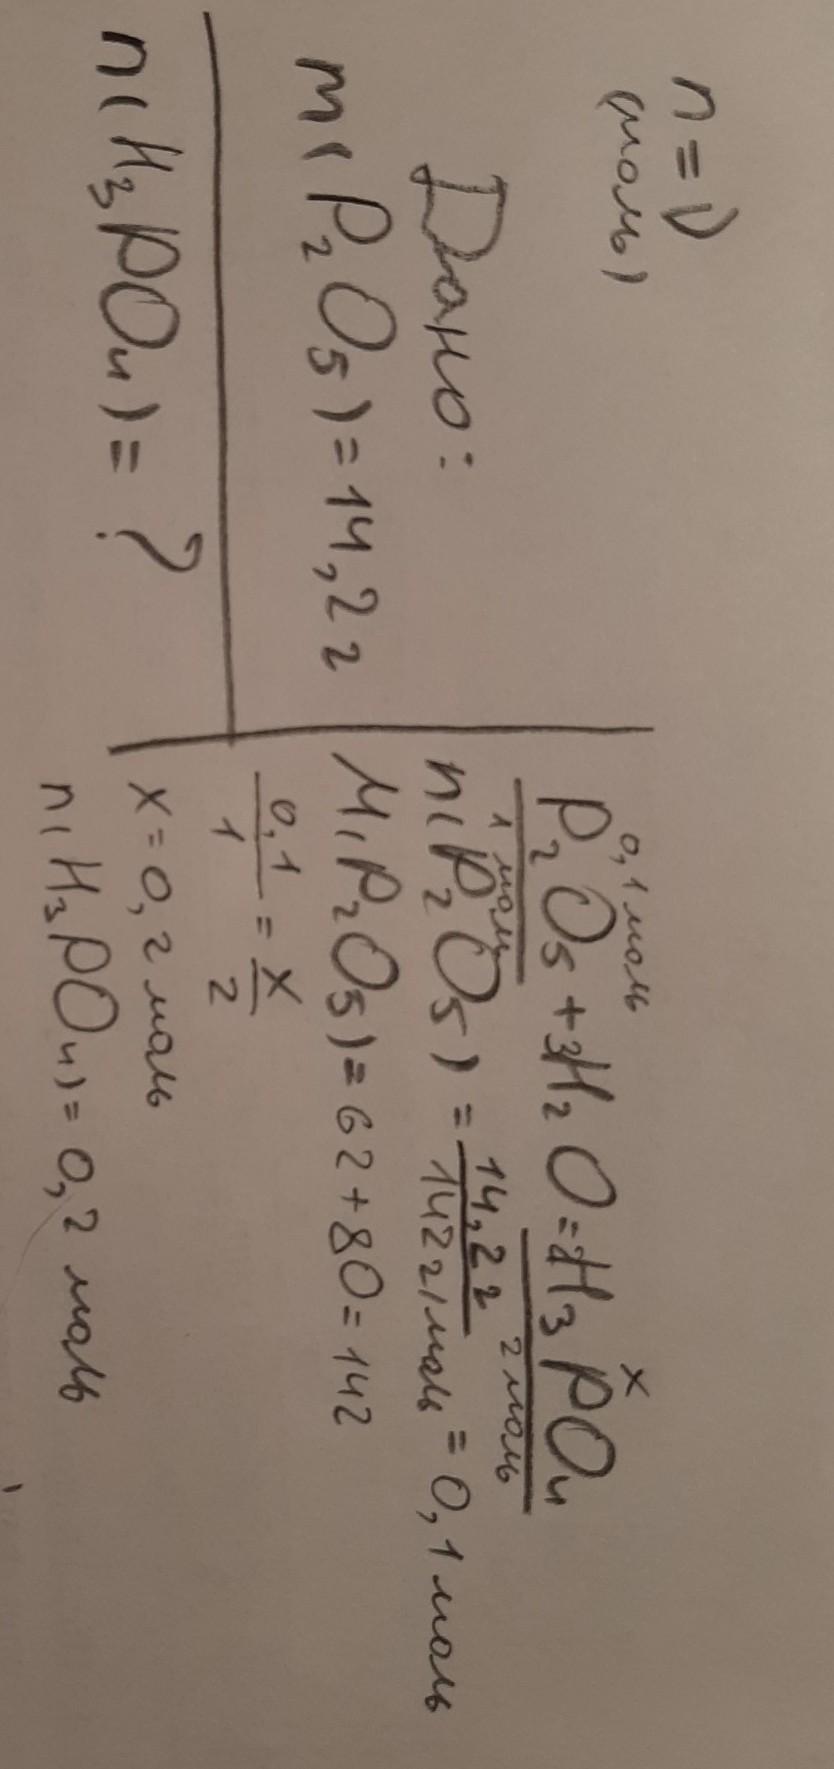 n = ν
(моль)
Дано:
m(P₂O₅) = 14,2 г
n(H₃PO₄) = ?
0,1 моль x
P₂O₅ + 3H₂O = 2H₃PO₄
1 моль 2 моль
n(P₂O₅) = 14,2 г / 142 г/моль = 0,1 моль
M(P₂O₅) = 62 + 80 = 142
0,1 / 1 = x / 2
x = 0,2 моль
n(H₃PO₄) = 0,2 моль